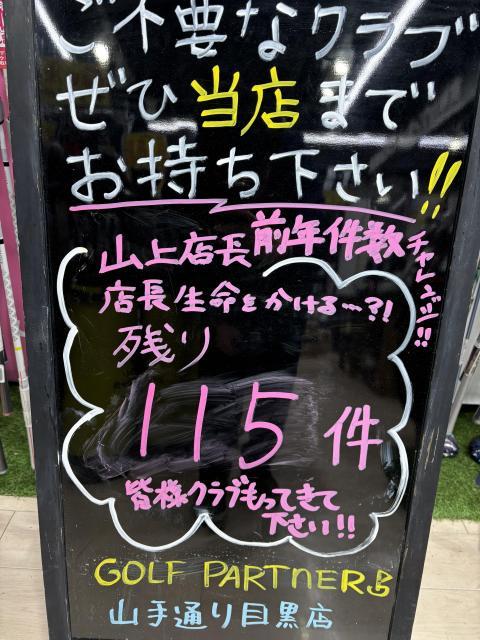 ご不要なクラブ
ぜひ当店まで
お持ち下さい!!
山上店長前年件数チャレンジ!!
店長生命をかける…?!
残り
115件
皆様クラブもってきて
下さい!!
GOLF PARTNER
山手通り目黒店